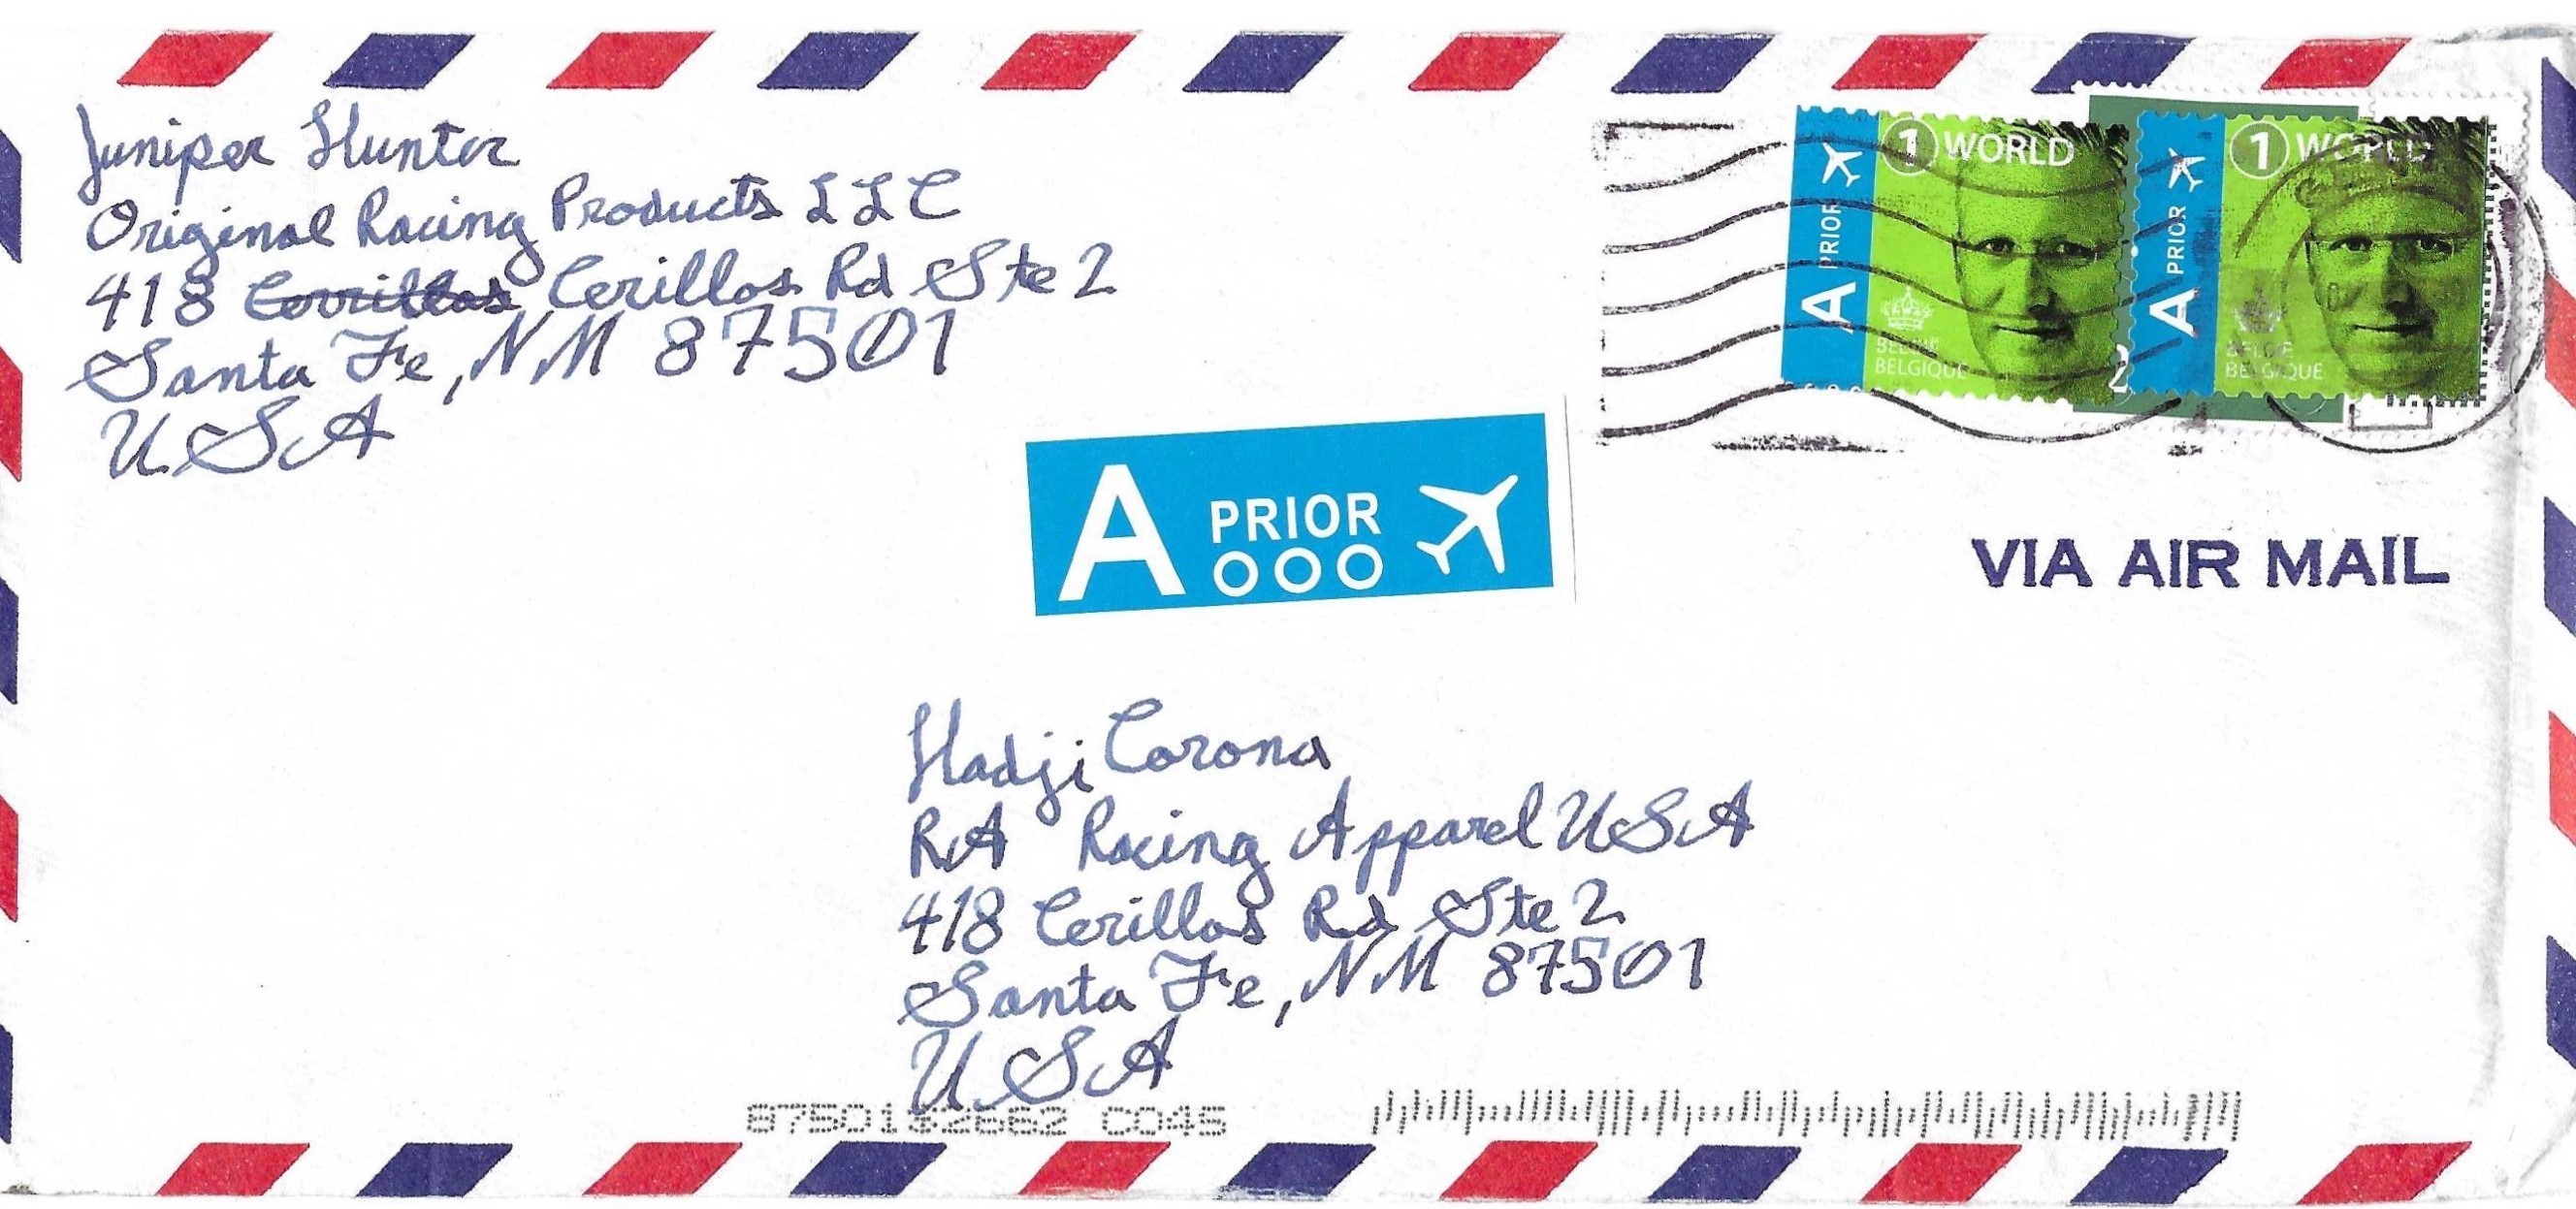 Juniper Hunter
Original Racing Products LLC
418 Cerillos Rd Ste 2
Santa Fe, NM 87501
USA
A PRIOR
1 WORLD
BELGIE
BELGIQUE
A PRIOR
1 WORLD
BELGIE
BELGIQUE
A PRIOR
VIA AIR MAIL
Hadji Corona
RA Racing Apparel USA
418 Cerillos Rd Ste 2
Santa Fe, NM 87501
USA
87501$2662 C045